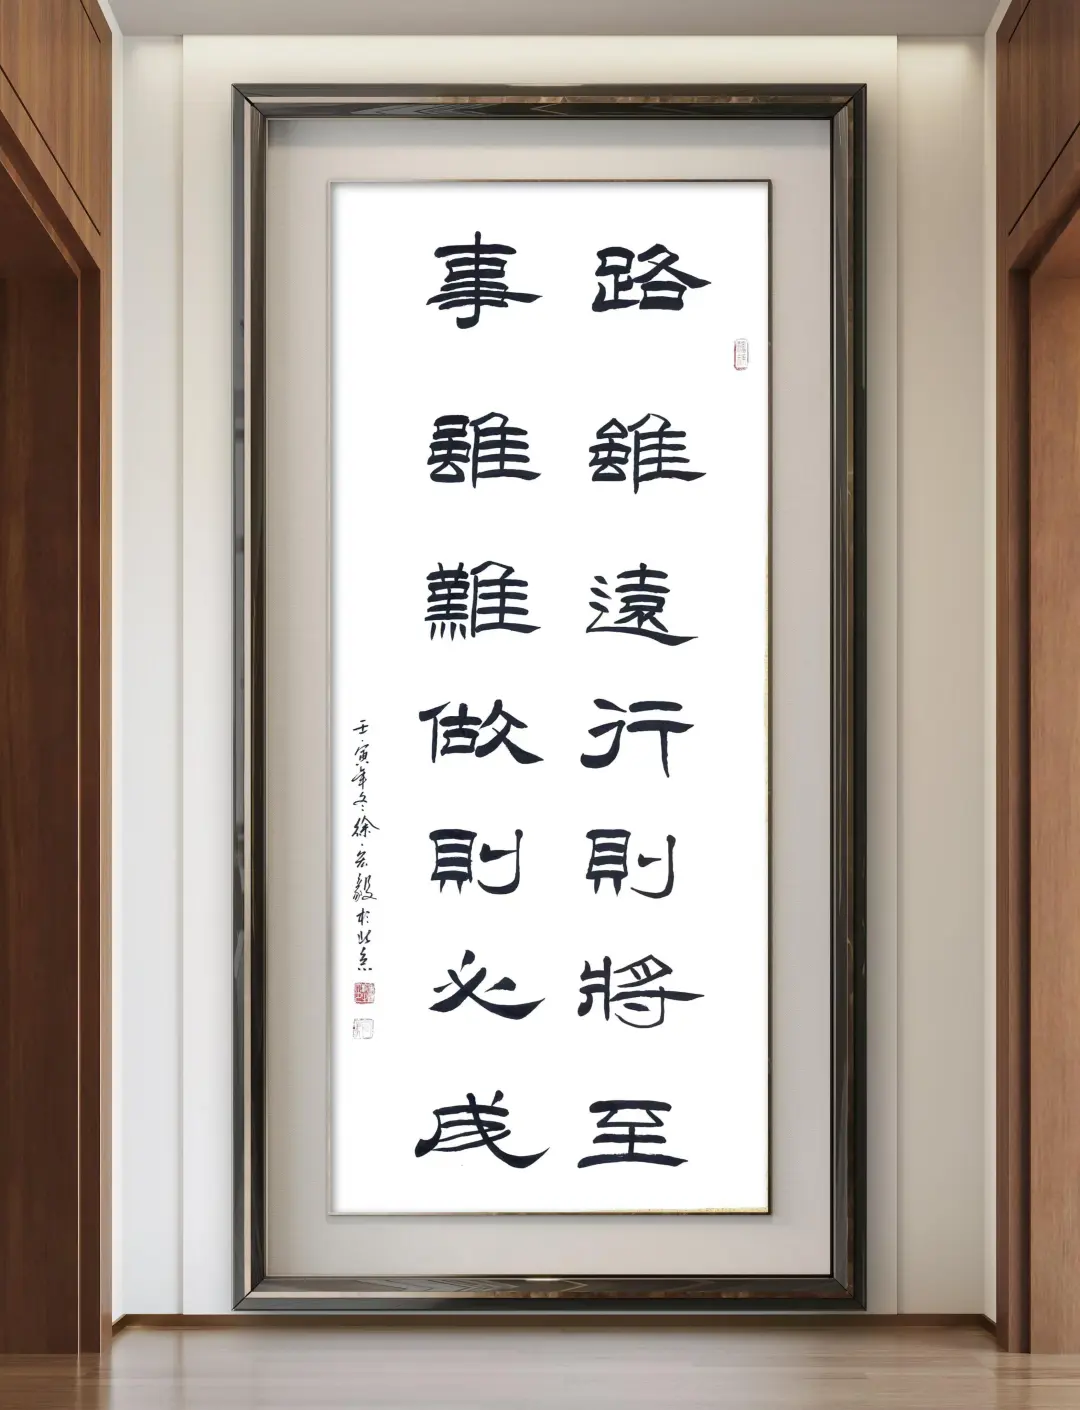 路雖遠行則將至
事雖難做則必成
壬寅年冬徐宏毅於北京